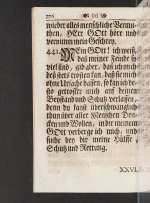 wieder alles menschliche Vermu-
then. HErr GOtt höre und
vernimm mein Geschrey.
441. MEin GOtt! ich weiß,
das meiner Feinde so
viel sind, gib aber, daß ich mich
deß stets trösten kan, daß sie mich
ohne Ursache hassen, so kan ich de-
sto getroster mich auf deinen
Beystand und Schutz verlassen,
denn du kanst überschwänglich
thun über aller Menschen Den-
cken und Wollen, in dir meinem
GOtt verberge ich mich, und
finde bey dir meine Hülffe,
Schutz und Rettung.
XXVI.